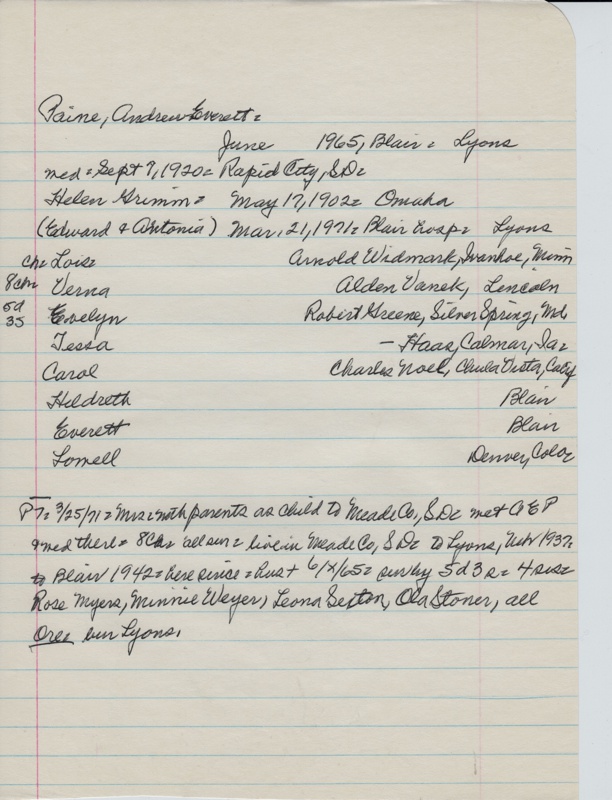 Paine, Andrew Everett =
June 1965, Blair = Lyons
med = Sept 7, 1920 = Rapid City, S.D. =
Helen Grimm = May 17, 1902 = Omaha
(Edward & Antonia) Mar. 21, 1971 = Blair hosp = Lyons
ch = Lois = Arnold Widmark, Ivanhoe, Minn
8 chn Verna Alden Vanek, Lincoln
5d Evelyn Robert Greene, Silver Spring, Md.
3s Tessa — Haas, Calmar, Ia =
Carol Charles Noel, Chula Vista, Calif
Hildreth Blair
Everett Blair
Lomell Denver, Colo
PT = 3/25/71 = Mrs = with parents as child to Meade Co, S.D. = met A E P
& med there = 8 Ch = all sur = live in Meade Co, S.D. = to Lyons, Nebr 1937 =
Blair 1942 = here since = hus + 6/x/65 = sur by 5 d 3 s = 4 sis =
Rose Myers, Minnie Weyer, Leona Sexton, Ola Stoner, all
Oree bur Lyons.